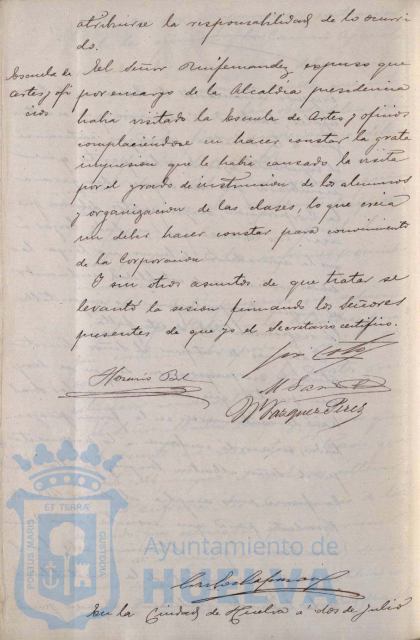 atribuirse la responsabilidad de lo ocurri
do.
Escuela de
Artes y ofi
cios
El Señor Ruifernandez expuso que
por encargo de la Alcaldia presidencia
habia visitado la Escuela de Artes y oficios
complaciendose en hacer constar la grata
impresion que le habia causado la visita
por el grado de instruccion de los alumnos
y organizacion de las clases, lo que creia
un deber hacer constar para conocimiento
de la Corporacion
I sin otros asuntos de que tratar se
levantó la sesion firmando los Señores
presentes de que yo el Secretario certifico.
Horacio Bel
M Vazquez Perez
PORTUS MARIS ET TERRÆ CUSTODIA
Ayuntamiento de
HUELVA
En la Ciudad de Huelva á dos de Julio